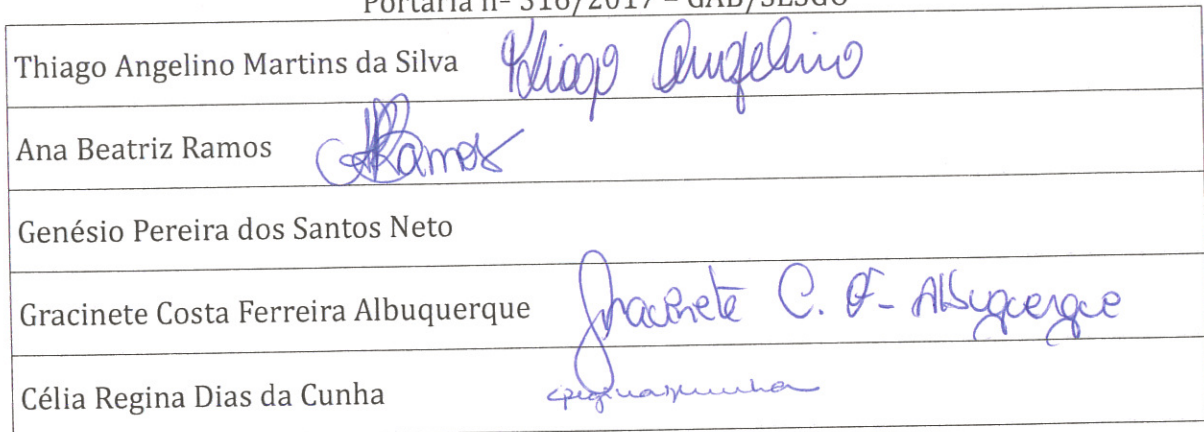 Portaria nº 316/2017 – GAB/SESGO
Thiago Angelino Martins da Silva Thiago Angelino
Ana Beatriz Ramos ARamos
Genésio Pereira dos Santos Neto
Gracinete Costa Ferreira Albuquerque Gracinete C. F- Albuquerque
Célia Regina Dias da Cunha